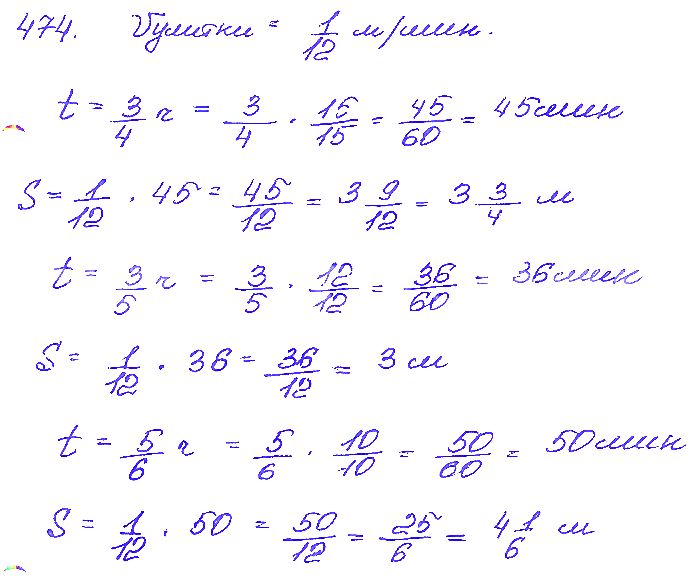 474. Vулитки = 1/12 м/мин.
t = 3/4 ч = 3/4 · 15/15 = 45/60 = 45мин
S = 1/12 · 45 = 45/12 = 3 9/12 = 3 3/4 м
t = 3/5 ч = 3/5 · 12/12 = 36/60 = 36мин
S = 1/12 · 36 = 36/12 = 3 м
t = 5/6 ч = 5/6 · 10/10 = 50/60 = 50мин
S = 1/12 · 50 = 50/12 = 25/6 = 4 1/6 м